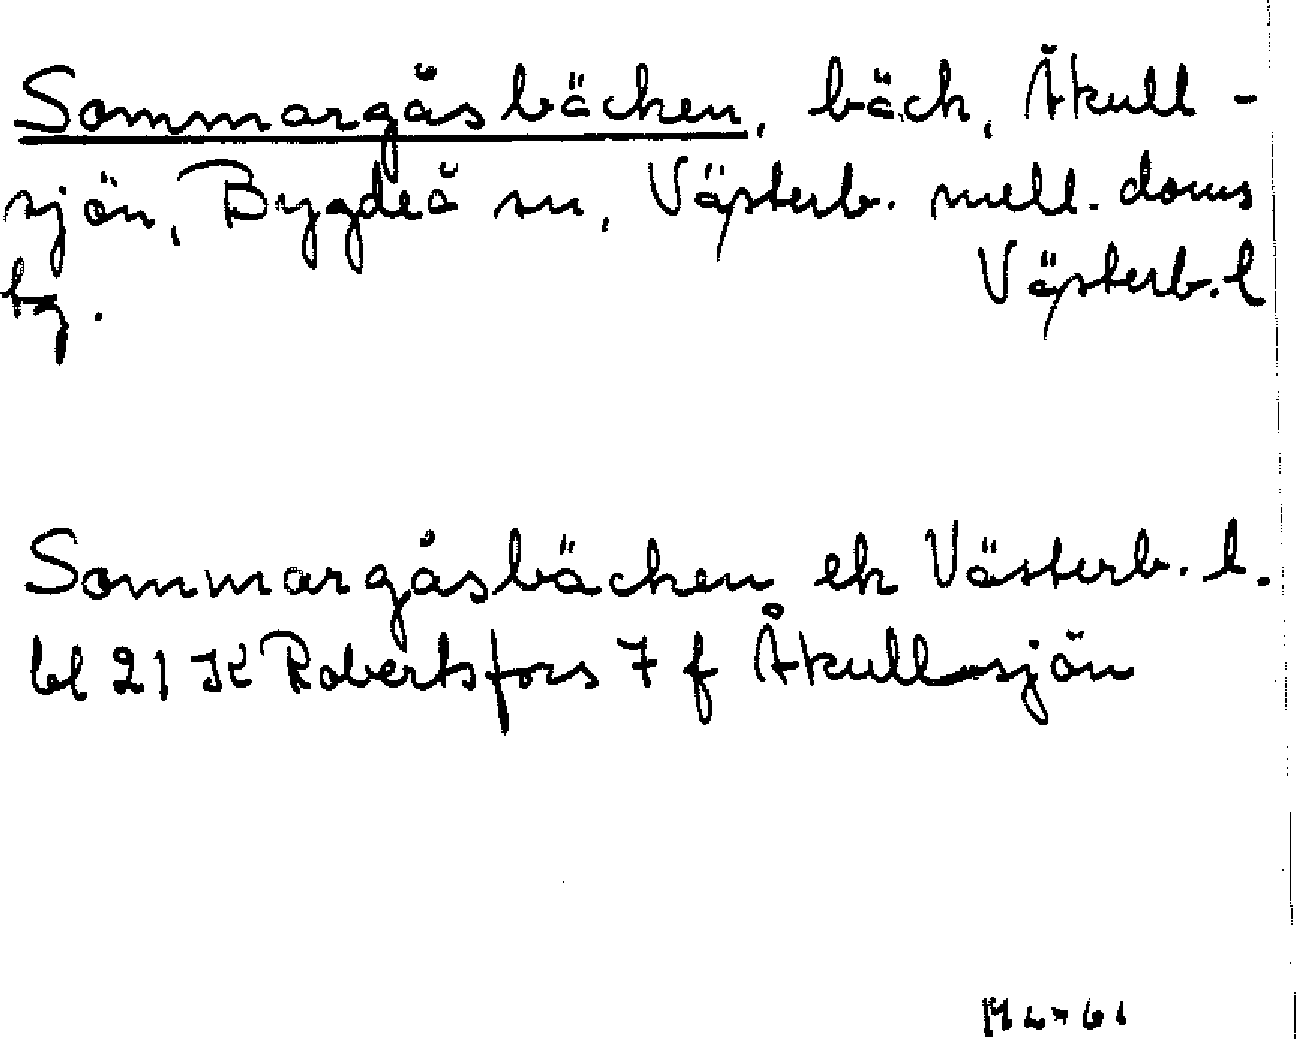 Sommargåsbäcken, bäck, Åkull-
sjön, Bygdeå sn, Västerb. mell. doms
tg. Västerb. l
Sommargåsbäcken ek Västerb. l.
bl 21 K Robertsfors 7 f Åkullsjön